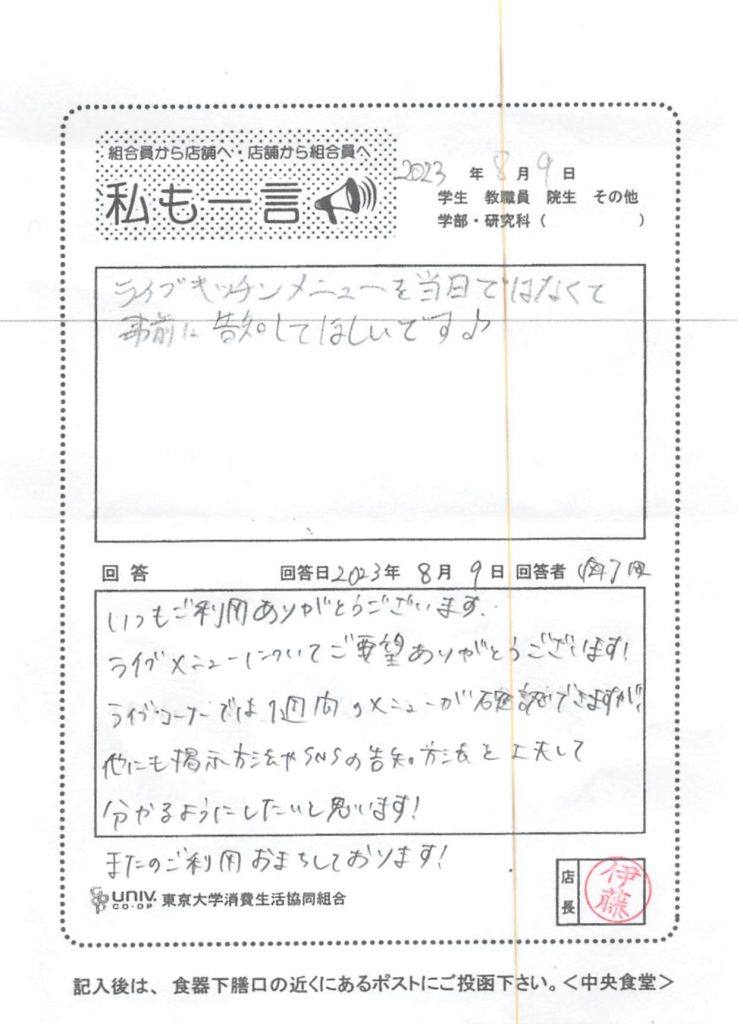 組合員から店舗へ・店舗から組合員へ
私も一言
2023 年 8 月 9 日
学生 教職員 院生 その他
学部・研究科 ( )
ライブキッチンメニューを当日ではなくて
事前に告知してほしいです♪
回答 回答日 2023年 8月 9日 回答者
いつもご利用ありがとうございます.
ライブメニューについてご要望ありがとうございます!
ライブコーナーでは1週間のメニューが確認できますが、
他にも掲示方法やSNSの告知方法を工夫して
分かるようにしたいと思います!
またのご利用おまちしております!
UNIV. CO-OP 東京大学消費生活協同組合
店長 伊藤
記入後は、食器下膳口の近くにあるポストにご投函下さい。<中央食堂>